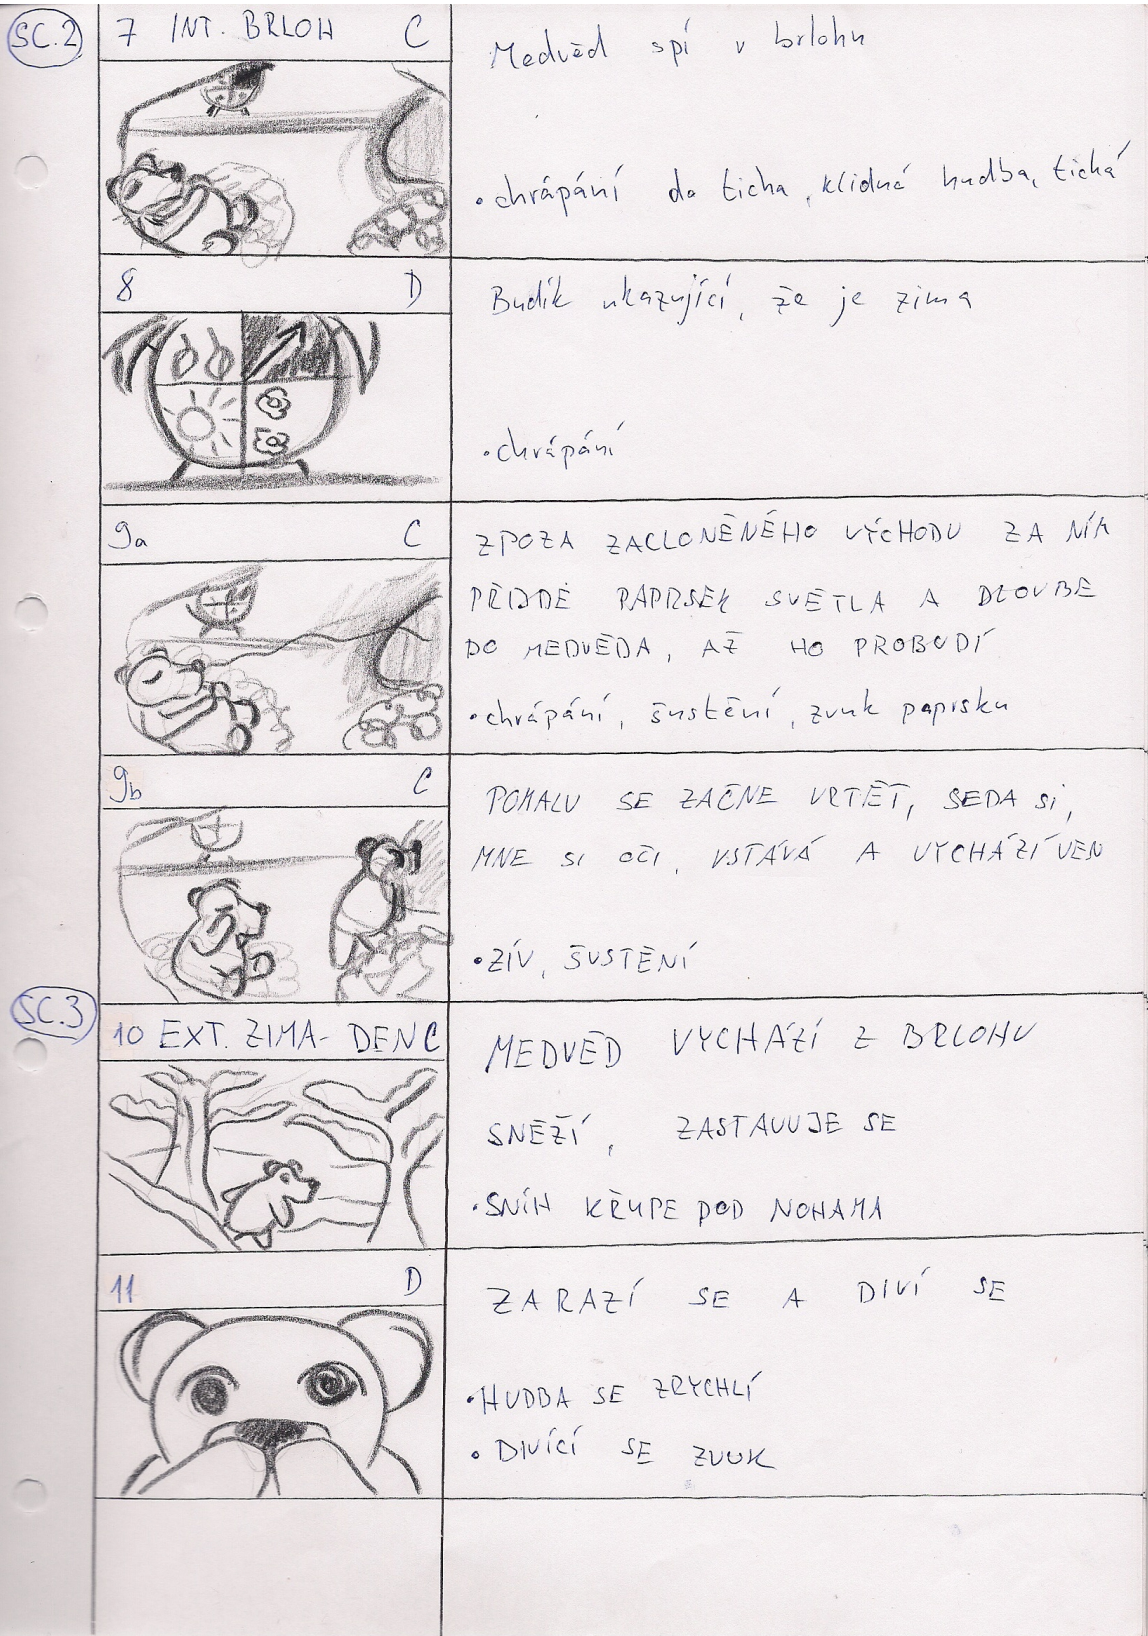 SC.2
7 INT. BRLOH C
Medvěd spí v brlohu
• chrápání do ticha, klidná hudba, tichá
8 D
Budík ukazující, že je zima
• chrápání
9a C
ZPOZA ZACLONĚNÉHO VÝCHODU ZA NÍM
PŘIJDE PAPRSEK SVĚTLA A DLOUBE
DO MEDVĚDA, AŽ HO PROBUDÍ
• chrápání, šustění, zvuk paprsku
9b C
POMALU SE ZAČNE VRTĚT, SEDA SI,
MNE SI OČI, VSTÁVÁ A VYCHÁZÍ VEN
• ZÍV, ŠUSTĚNÍ
SC.3
10 EXT. ZIMA - DEN C
MEDVĚD VYCHÁZÍ Z BRLOHU
SNĚŽÍ, ZASTAVUJE SE
• SNÍH KŘUPE POD NOHAMA
11 D
ZARAZÍ SE A DIVÍ SE
• HUDBA SE ZRYCHLÍ
• DIVÍCÍ SE ZVUK